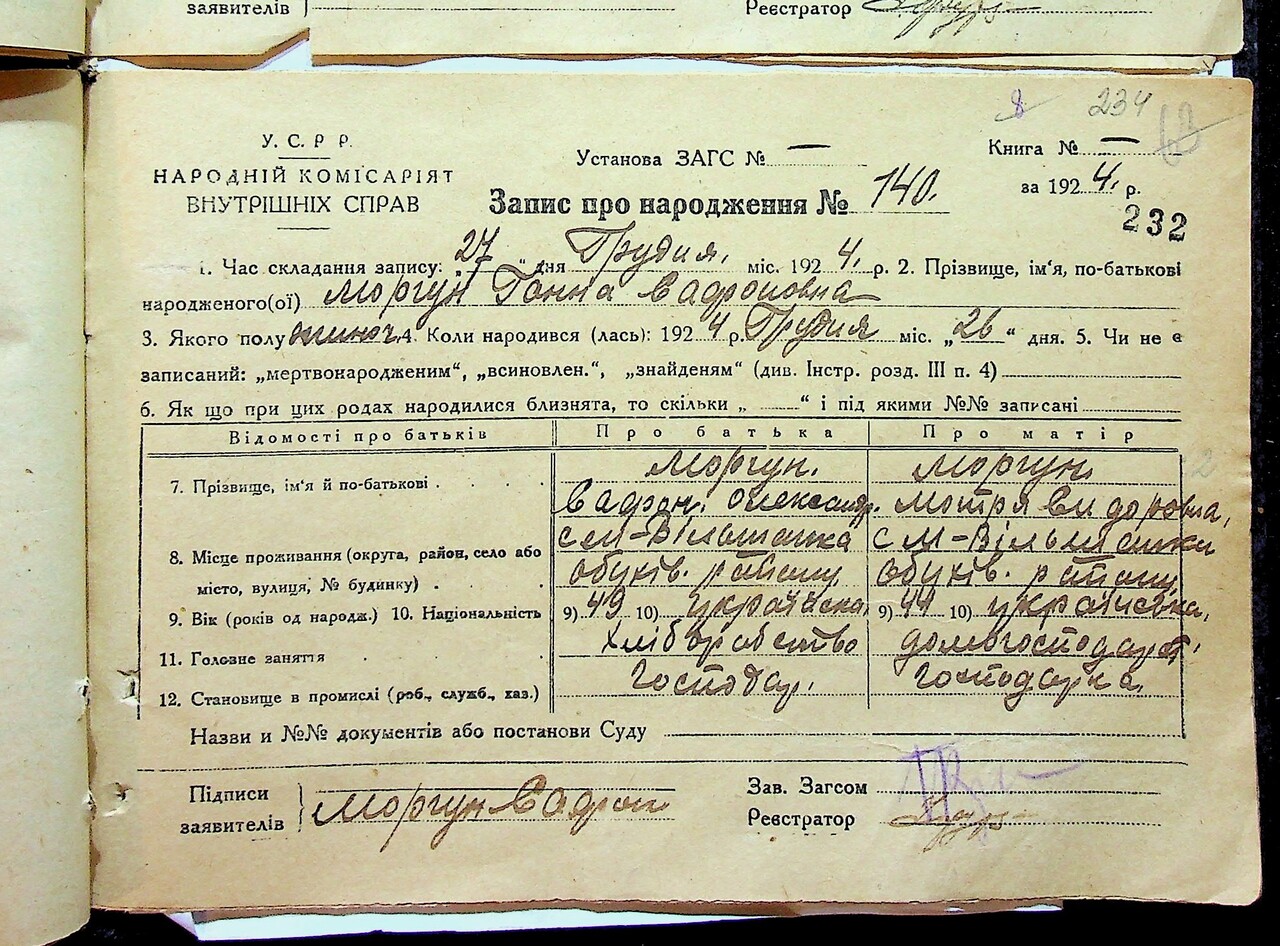 заявителів
Реєстратор
8 234
У. С. Р Р.
НАРОДНІЙ КОМІСАРІЯТ
ВНУТРІШНІХ СПРАВ
Установа ЗАГС № —
Книга № —
Запис про народження № 140.
за 1924. р.
232
1. Час складання запису: „27“ дня Грудня. міс. 1924. р. 2. Прізвище, ім'я, по-батькові
народженого(ої) Моргун Ганна Сафроновна
3. Якого полу жиноч. 4. Коли народився (лась): 1924 р. Грудня міс. „26“ дня. 5. Чи не є
записаний: „мертвонародженим“, „всиновлен.“, „знайденям“ (див. Інстр. розд. III п. 4)
6. Як що при цих родах народилися близнята, то скільки „ “ і під якими №№ записані
Відомості про батьків Про батька Про матір
7. Прізвище, ім'я й по-батькові Моргун. Моргун
Сафрон. Олександр. Мотря
8. Місце проживання (округа, район, село або см-Вільшанка см-Вільшанки
місто, вулиця, № будинку) обухів. району обухів. району
9. Вік (років од народж.) 10. Національність 9) 49 10) українська 9) 44 10) українська,
11. Головне заняття хліборобство домогосподар.
12. Становище в промислі (роб., служб., хаз.) Господар. Господарка.
Назви и №№ документів або постанови Суду
Підписи
заявителів Моргун Сафрон
Зав. Загсом
Реєстратор